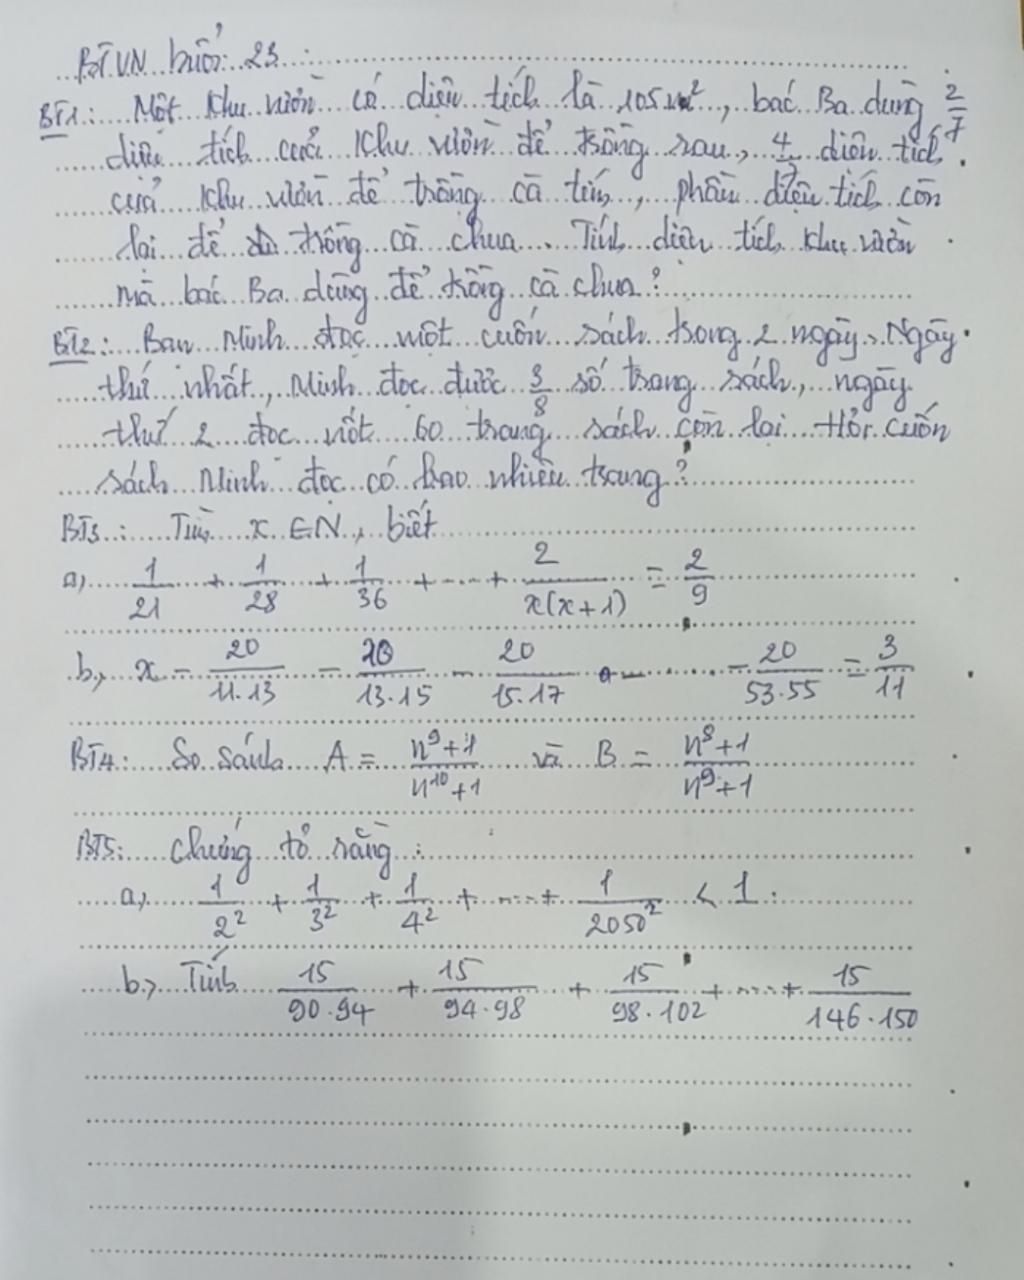 BTVN buổi: 23:
BT1: Một khu vườn có diện tích là 105m², bác Ba dùng 2/7
diện tích của khu vườn để trồng rau, diện tích
của khu vườn để trồng cà tím, phần diện tích còn
lại để trồng cà chua. Tính diện tích khu vườn
mà bác Ba dùng để trồng cà chua?
BT2: Bạn Minh đọc một cuốn sách trong 2 ngày. Ngày
thứ nhất, Minh đọc được 3/8 số trang sách, ngày
thứ 2 đọc nốt 60 trang sách còn lại. Hỏi cuốn
sách Minh đọc có bao nhiêu trang?
BT3: Tìm x ∈ N, biết
a) 1/21 + 1/28 + 1/36 + ... + 2/x(x+1) = 2/9
b, x - 20/11.13 - 20/13.15 - 20/15.17 - ... - 20/53.55 = 3/11
BT4: So sánh A = n⁹+1/n¹⁰+1 và B = n⁸+1/n⁹+1
BT5: Chứng tỏ rằng:
a, 1/2² + 1/3² + 1/4² + ... + 1/2050² < 1.
b, Tính 15/90.94 + 15/94.98 + 15/98.102 + ... + 15/146.150